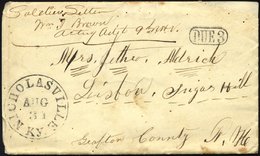 Soldiers Letter
Wm. F. Brown
Acting Adjt 9 N.H.V.
DUE 3
Mrs. Aldrich
Lisbon Sugar Hill
Grafton County N. H
NICHOLASVILLE KY.
AUG
31